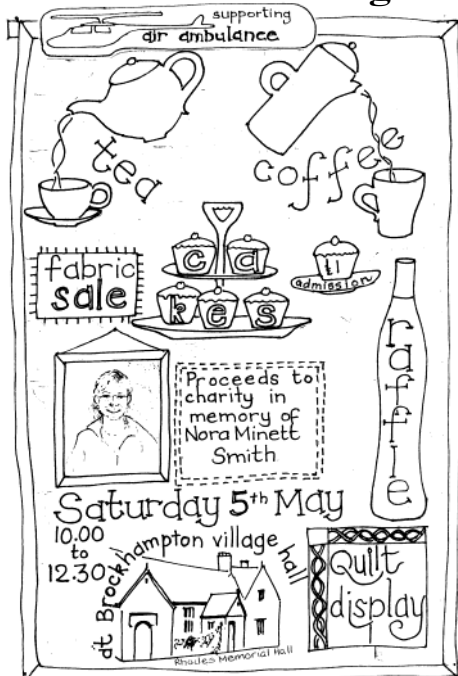 supporting
air ambulance
tea
coffee
cakes
£1
admission
fabric
sale
raffle
Proceeds to
charity in
memory of
Nora Minett
Smith
Saturday 5th May
10.00
to
12.30
at Brockhampton village hall
Rhodes Memorial Hall
Quilt
display